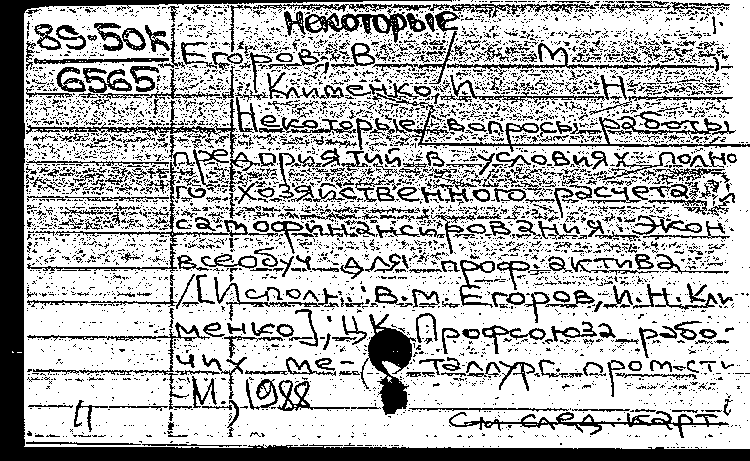 некоторые
89-50к
6565
Егоров, В М
Клименко, И Н
Некоторые вопросы работы
предприятий в условиях полно
го хозяйственного расчета и
самофинансирования. Экон.
всеобуч для проф. актива
/[Исполн.: В.М. Егоров, И.Н. Кли
менко]; ЦК Профсоюза рабо-
чих металлург. пром-сти
-М. 1988
См. след. карт